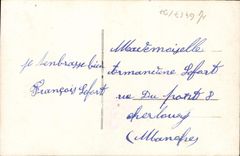 je tenbrasse bien
François Lefort
Mademoiselle
Armandine Lefort
rue Du 8
cherbourg
(Manche)